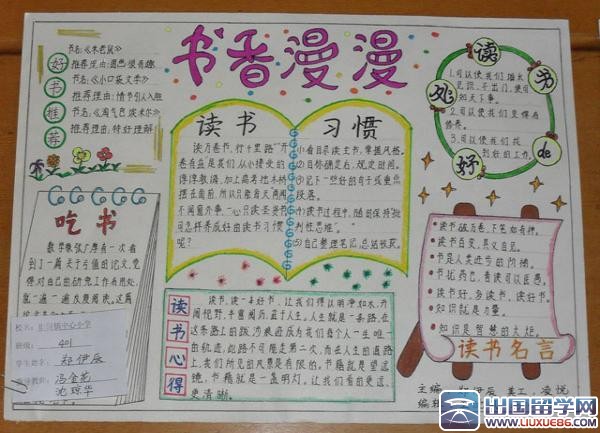 书香漫漫
好书推荐
书名：《米老鼠》
推荐理由：画面很有趣
书名：《小口袋文学》
推荐理由：情节引人入胜
书名：《淘气包埃米尔》
推荐理由：特好理解
读书 习惯
读万卷书，行千里路
开卷有益是我们从小接受的
谆谆教诲，加上高考独木桥
摆在面前，所以只能每天两耳
不闻窗外事，一心只读圣贤书
可怎样养成好的读书习惯
呢？
看目录读全书，掌握风格。
(2)目标确定后，规定时间。
(3)记下一些好的句子或重点
段落。
(4)读书过程中，随时保持"批
判性思维"。
(5)自己整理笔记，总结收获。
读书de好处
1.可以使我们增长
见识，不出门，便可
知天下事。
2.可以使我们变得有
修养。
3.可以使我们找
到好的工作。
吃书
数学家张广厚有一次看
到了一篇关于亏值的论文，觉
得对自己的研究工作有用处，
就一遍又一遍反复阅读。这篇
校名：
中心小学
班级：401
学生姓名：郑伊辰
读书心得
读书，读一本好书，让我们得以明净如水，开
阔视野，丰富阅历，益于人生。人生就是一条路，在
这条路上的跋涉痕迹成为我们每个人一生唯一
的轨迹，此路不可能走第二次，而在人生的道路
上，我们所见的风景是有限的。书籍就是望远
镜，书籍就是一盏明灯，让我们看的更远、
更清晰。
读书破万卷，下笔如有神。
读书百变，其义自见。
书是人类进步的阶梯。
书犹药也，善读可以医愚。
读书好，多读书，读好书。
知识就是力量。
知识是智慧的火炬。
读书名言
主编
美工：凌悦
编
出国留学网
WWW.LIUXUE86.COM